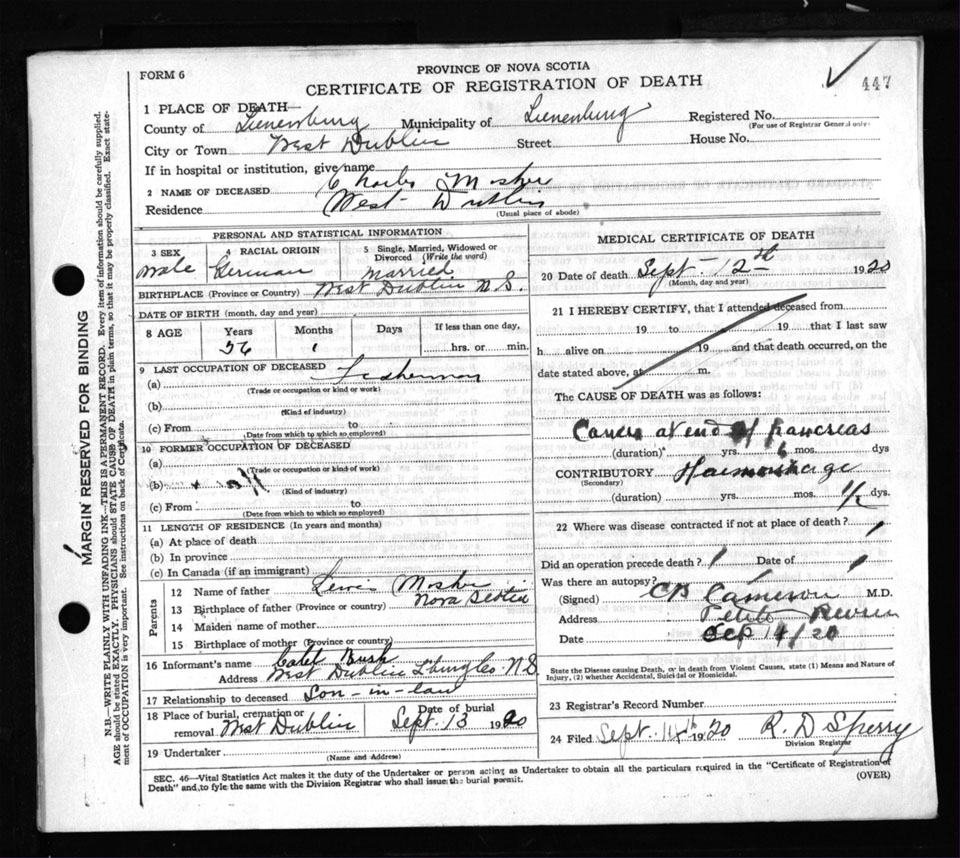 PROVINCE OF NOVA SCOTIA
FORM 6
CERTIFICATE OF REGISTRATION OF DEATH
447
1 PLACE OF DEATH—
County of Lunenburg Municipality of Lunenburg Registered No.
(For use of Registrar General only)
City or Town West Dublin Street House No.
If in hospital or institution, give name
2 NAME OF DECEASED Charles Mosher
Residence West Dublin
(Usual place of abode)
PERSONAL AND STATISTICAL INFORMATION
3 SEX 4 RACIAL ORIGIN 5 Single, Married, Widowed or Divorced (Write the word)
Male German Married
BIRTHPLACE (Province or Country) West Dublin N.S.
DATE OF BIRTH (month, day and year)
8 AGE Years Months Days If less than one day,
56 1 hrs. or min.
9 LAST OCCUPATION OF DECEASED
(a) Fisherman
(Trade or occupation or kind or work)
(b)
(Kind of industry)
(c) From to
(Date from which to which so employed)
10 FORMER OCCUPATION OF DECEASED
(a)
(Trade or occupation or kind of work)
(b)
(Kind of industry)
(c) From to
(Date from which to which so employed)
11 LENGTH OF RESIDENCE (In years and months)
(a) At place of death
(b) In province
(c) In Canada (if an immigrant)
Parents
12 Name of father Lewis Mosher
13 Birthplace of father (Province or country) Nova Scotia
14 Maiden name of mother
15 Birthplace of mother (Province or country)
16 Informant's name Caleb Bush
Address West Dublin L'burg Co. N.S.
17 Relationship to deceased Son-in-law
18 Place of burial, cremation or removal West Dublin Date of burial Sept. 13 1920
19 Undertaker
(Name and Address)
MEDICAL CERTIFICATE OF DEATH
20 Date of death Sept. 12th 1920
(Month, day and year)
21 I HEREBY CERTIFY, that I attended deceased from
19 to 19 that I last saw
h alive on 19 and that death occurred, on the
date stated above, at m.
The CAUSE OF DEATH was as follows:
Cancer at end of Pancreas
(duration) yrs. 6 mos. dys
CONTRIBUTORY Haemorrhage
(Secondary)
(duration) yrs. mos. 1/2 dys.
22 Where was disease contracted if not at place of death?
Did an operation precede death? Date of
Was there an autopsy?
(Signed) CB Cameron M.D.
Address Petite Riviere
Date Sep 14/20
State the Disease causing Death, or in death from Violent Causes, state (1) Means and Nature of
Injury, (2) whether Accidental, Suicidal or Homicidal.
23 Registrar's Record Number
24 Filed Sept. 14th 1920 R. D Sperry
Division Registrar
SEC. 46—Vital Statistics Act makes it the duty of the Undertaker or person acting as Undertaker to obtain all the particulars required in the "Certificate of Registration of
Death" and to fyle the same with the Division Registrar who shall issue the burial permit.
(OVER)
MARGIN RESERVED FOR BINDING
N.B.—WRITE PLAINLY WITH UNFADING INK—THIS IS A PERMANENT RECORD. Every item of information should be carefully supplied.
AGE should be stated EXACTLY. PHYSICIANS should STATE CAUSE OF DEATH in plain terms, so that it may be properly classified. Exact state-
ment of OCCUPATION is very important. See instructions on back of Certificate.